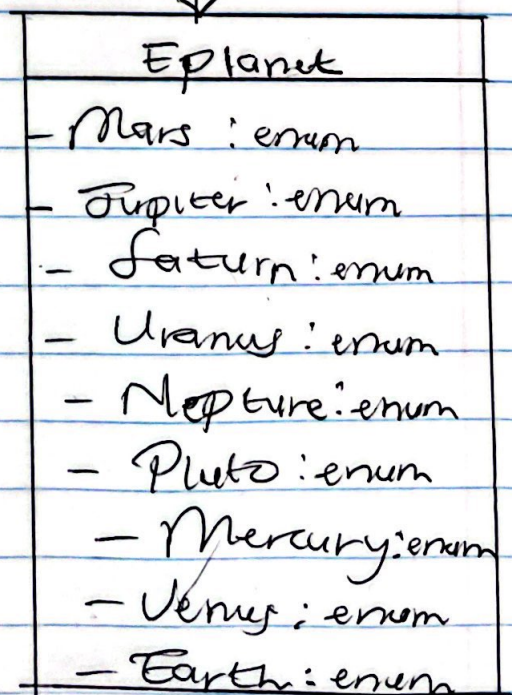 Eplanet
- Mars : enum
- Jupiter : enum
- Saturn : enum
- Uranus : enum
- Nepture : enum
- Pluto : enum
- Mercury : enum
- Venus ; enum
- Earth : enum